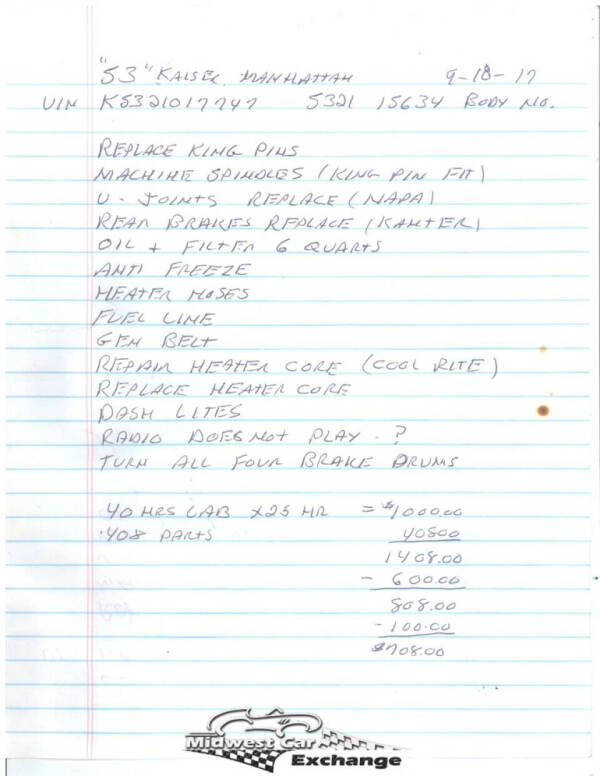 "53" KAISER MANHATTAN 9-18-17
VIN K5321017747 5321 15634 BODY NO.
REPLACE KING PINS
MACHINE SPINDLES (KING PIN FIT)
U-JOINTS REPLACE (NAPA)
REAR BRAKES REPLACE (KANTER)
OIL + FILTER 6 QUARTS
ANTI FREEZE
HEATER HOSES
FUEL LINE
GEN BELT
REPAIR HEATER CORE (COOL RITE)
REPLACE HEATER CORE
DASH LITES
RADIO DOES NOT PLAY . ?
TURN ALL FOUR BRAKE DRUMS
40 HRS LAB X25 HR = $1000.00
.408 PARTS 40800
1408.00
- 600.00
808.00
- 100.00
$708.00
Midwest Car
Exchange